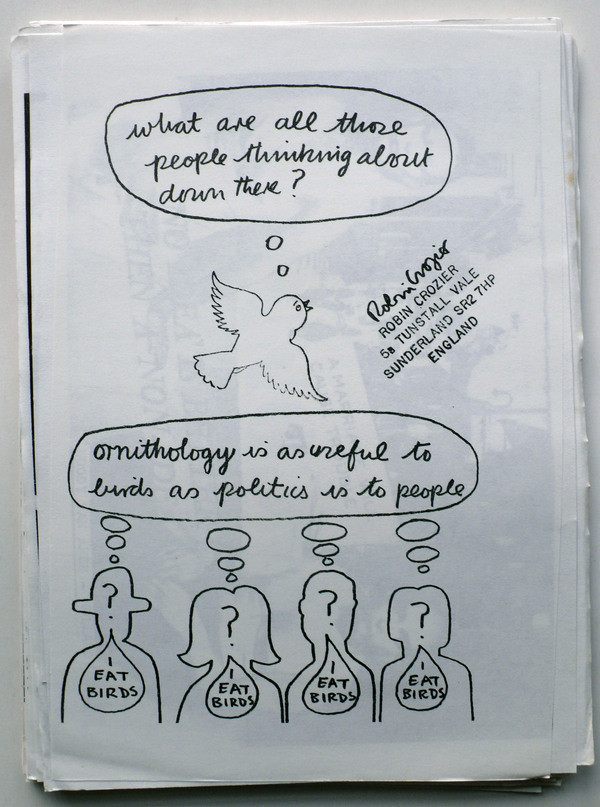 what are all those
people thinking about
down there?
Robin Crozier
ROBIN CROZIER
5B TUNSTALL VALE
SUNDERLAND SR2 7HP
ENGLAND
ornithology is as useful to
birds as politics is to people
? ? ? ?
I EAT BIRDS
I EAT BIRDS
I EAT BIRDS
I EAT BIRDS